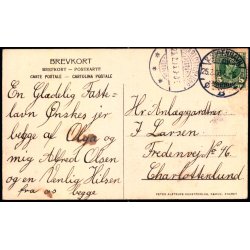 BREVKORT
BREFKORT - POSTKARTE
CARTE POSTALE - CARTOLINA POSTALE
En Glædelig Faste-
lavn Ønskes jer
begge af Olga og
mig Alfred Olsen
og en Venlig Hilsen
fra os begge
Hr Anlægsgartner
J Larsen
Fredensvej No 46
Charlottenlund